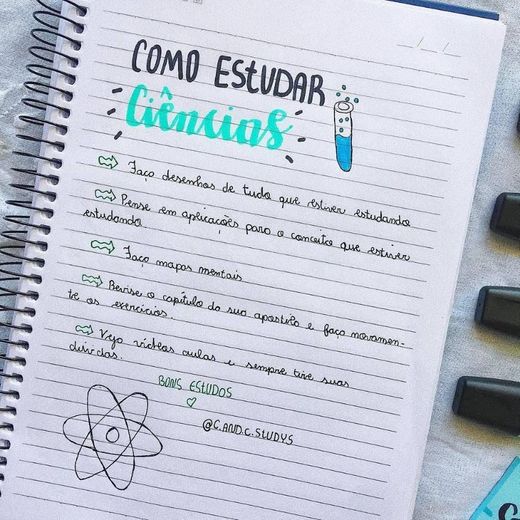 COMO ESTUDAR
Ciências
Faça desenhos de tudo que estiver estudando
Pense em aplicações para o conceito que estiver
estudando
Faça mapas mentais
Revise o capítulo da sua apostila e faça novamen-
te os exercícios.
Veja vídeos aulas e sempre tire suas
dúvidas.
BONS ESTUDOS
@C.AND.C.STUDYS